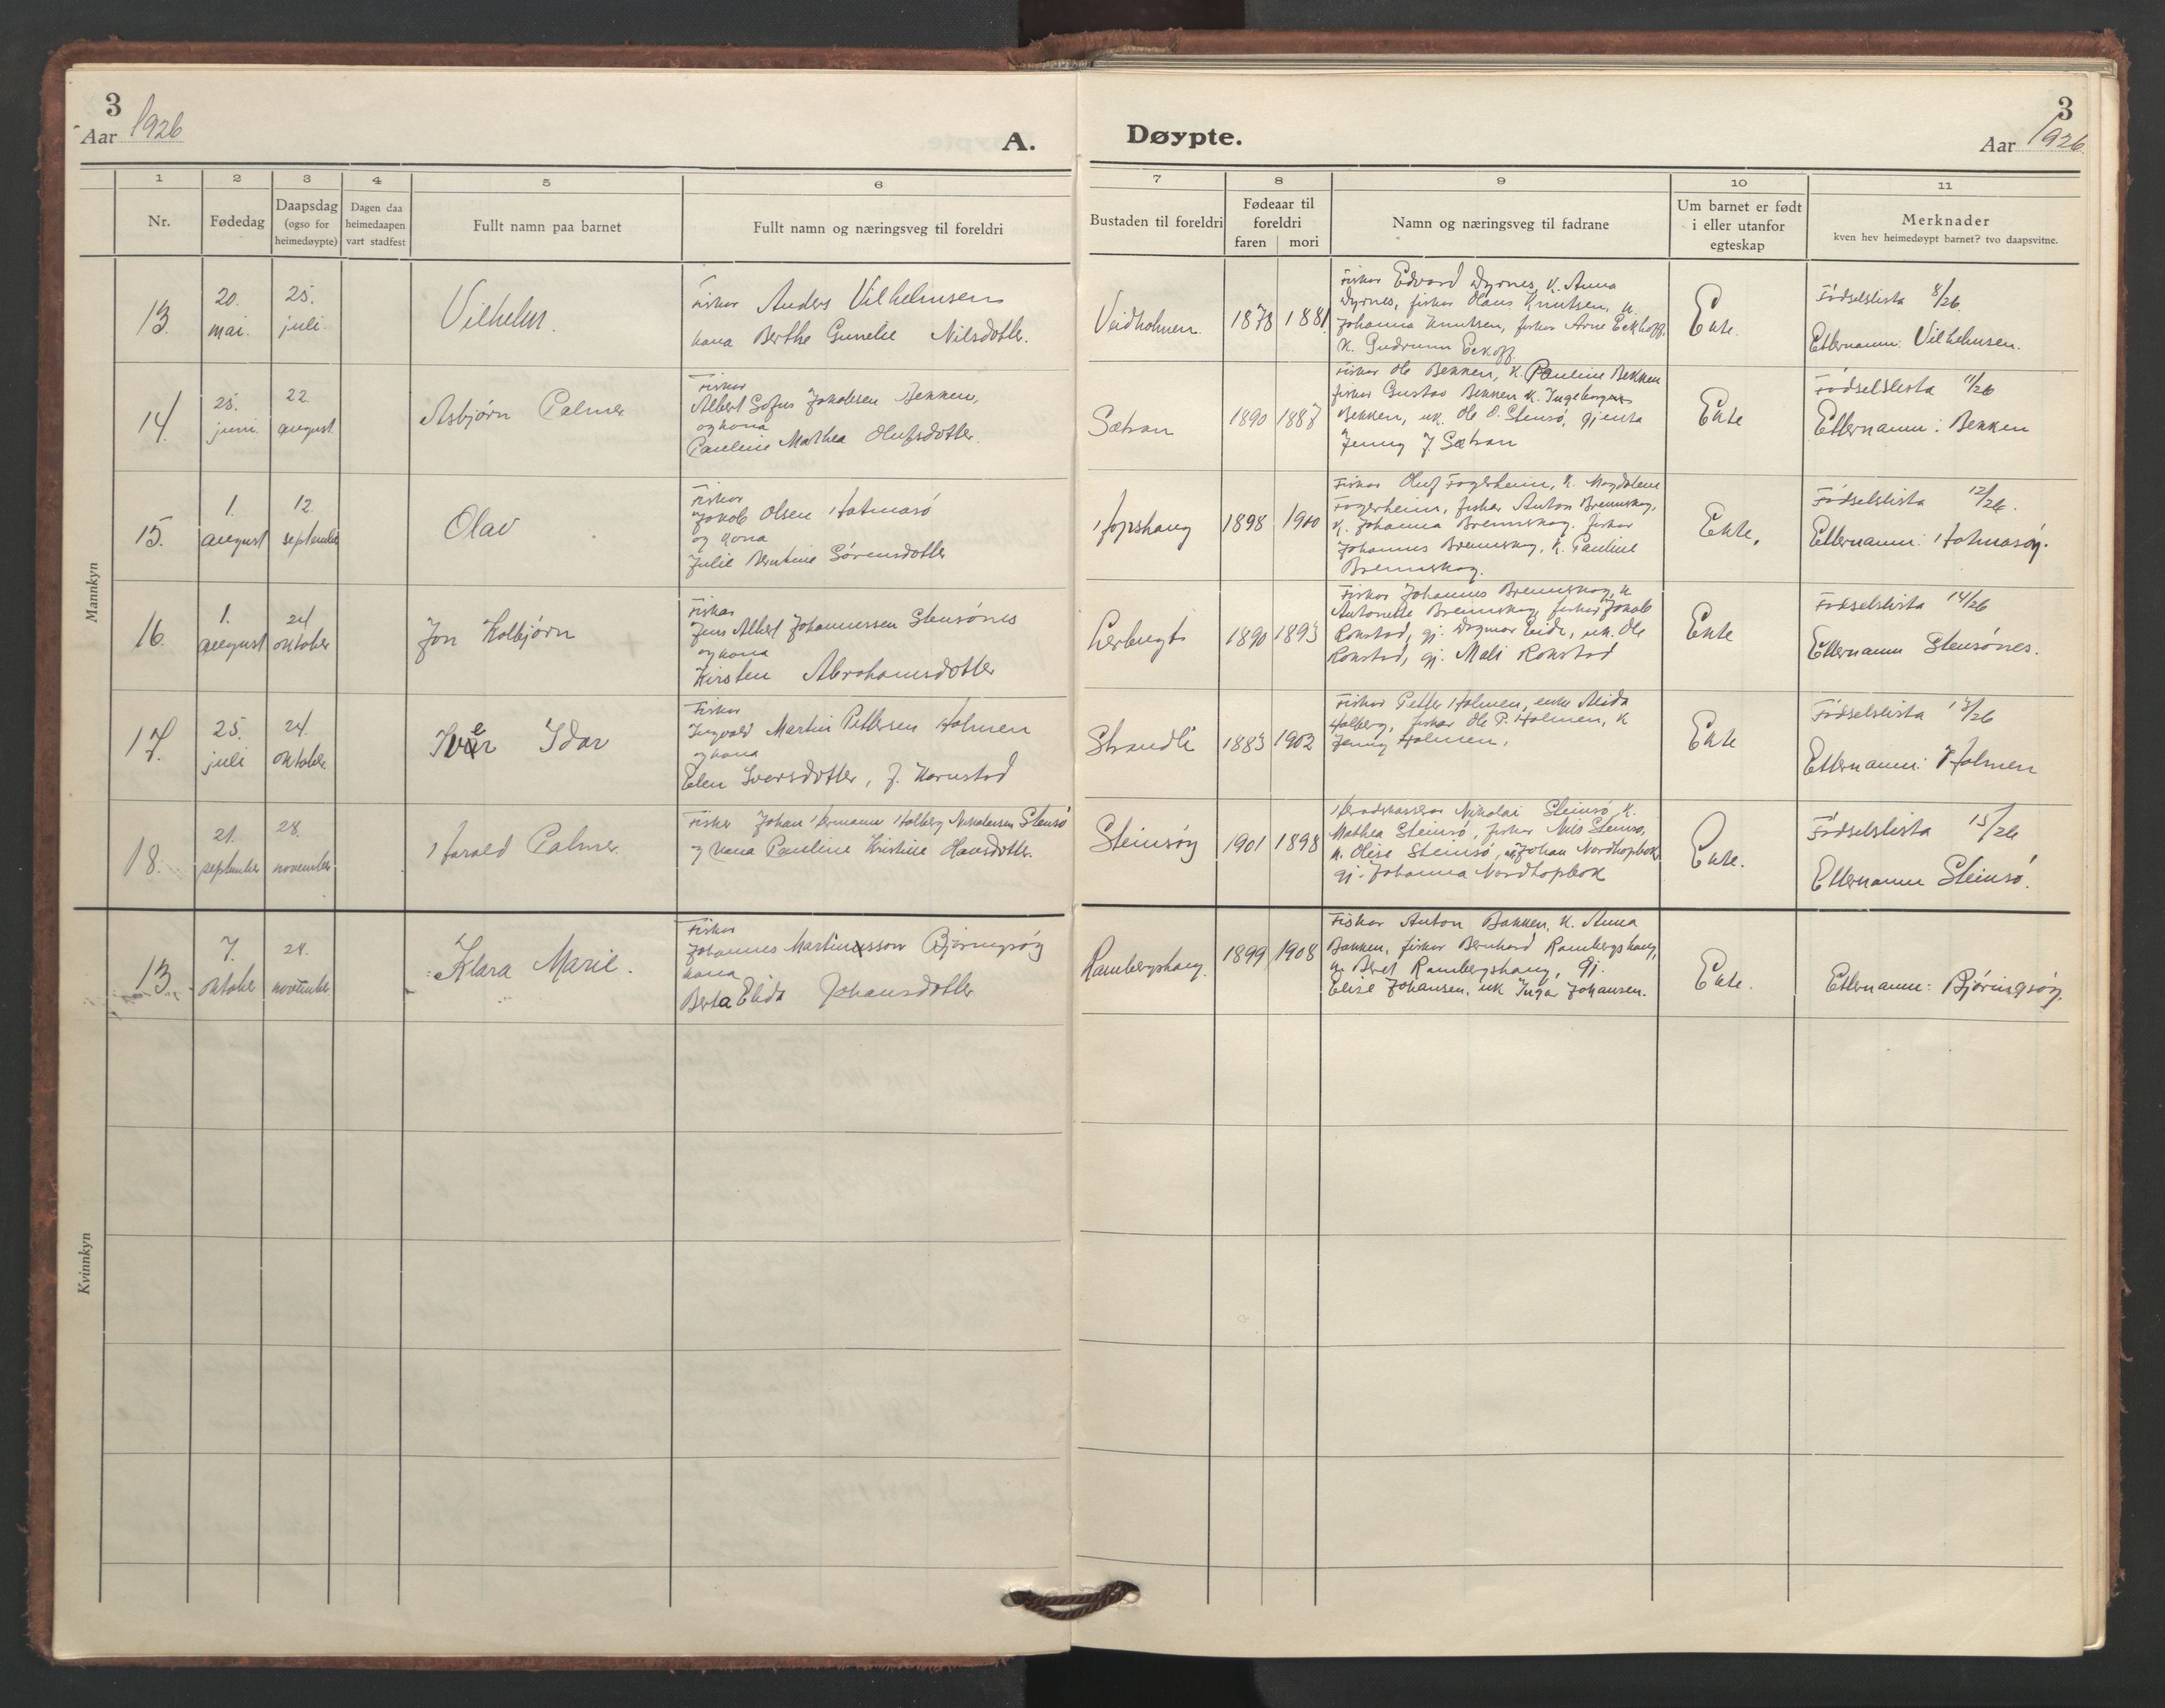 3
Aar 1926
A.
Døypte.
3
Aar 1926
1 2 3 4 5 6 7 8 9 10 11
Nr.
Fødedag
Daapsdag
(ogso for
heimedøypte)
Dagen daa
heimedaapen
vart stadfest
Fullt namn paa barnet
Fullt namn og næringsveg til foreldri
Bustaden til foreldri
Fødeaar til
foreldri
faren mori
Namn og næringsveg til fadrane
Um barnet er født
i eller utanfor
egteskap
Merknader
kven hev heimedøypt barnet? tvo daapsvitne.
Mannkyn
13.
20.
mai.
25.
juli.
Vilhelm.
Fiskar Anders Vilhelmsen
kona Berthe Gunelie Nilsdotter.
Veidholmen.
1878 1881.
Fiskar Edvard Dyrnes, K. Anna
Dyrnes, fiskar Hans Knutsen, K.
Johanna Knutsen, fiskar Arne Eckhoff.
K. Gudrunn Eckoff.
Ekte.
Fødselslista 8/26.
Etternamn: Vilhelmsen.
14.
25.
juni.
22.
august
Asbjørn Palmer
Fiskar
Albert Sofus Jakobsen Bekken,
og kona
Pauline Mathea Olufsdotter.
Sætran
1890 1887
Fiskar Ole Bekken, K. Pauline Bekken
fiskar Gustav Bekken K. Ingeborg
Bekken, uk. Ole O. Stensø, gjenta
Jenny J. Sætran
Ekte
Fødselslista 11/26
Etternamn: Bekken
15.
1.
august
12.
september
Olav
Fiskar
Jakob Olsen Hatmasø
og kona
Julie Berntine Sørensdotter
Hopshaug
1898 1900
Fiskar Oluf Fagerheim, K. Magdalene
Fagerheim, fiskar Anton Brennskag,
K. Johanna Brennskag. fiskar
Johannes Brennskag, K. Pauline
Brennskag.
Ekte,
Fødselslista 12/26.
Etternamn: Hatmasøy.
16.
1.
august
24
oktober
Jon Kolbjørn
Fiskar
Jens Albert Johannessen Stensønes
og kona
Kirsten Abrahamsdotter
Leirbugt
1890 1893
Fiskar Johannes Brennskag, K
Antonette Brennskag, fiskar Jakob
Rokstad, gj. Dagmar Eide, uk. Ole
Rokstad, gj. Mali Rokstad
Ekte
Fødselslista 14/26
Etternamn Stensønes.
17.
25.
juli
24.
oktober.
Iver Idar
Fiskar
Ingvald Martin Pettersen Holmen
og kona
Elen Iversdotter, f. Kornstad
Strandli
1883 1902
Fiskar Petter Holmen, enke Aleida
Holberg, fiskar Ole P. Holmen, K
Jenny Holmen.
Ekte
Fødselslista 13/26
Etternamn: Holmen
18.
21.
september
28.
november
Harald Palmer.
Fisker Johan Hermann Holberg Nikolaisen Stensø
og kona Pauline Kristine Hansdotter.
Steinsøy
1901 1898
Heradskasserar Nikolai Steinsø, K.
Mathea Steinsø, fiskar Nils Steinsø,
K. Olise Steinsø, uk Johan Nordhopbak
gj. Johanna Nordhopbak
Ekte.
Fødselslista 15/26
Etternamn Steinsø.
Kvinnkyn
13.
7.
oktober
28.
november
Klara Marie.
Fiskar
Johannes Martinusson Bjøringsøy
kona
Berta Elida Johansdotter
Rambergshaug.
1899 1908
Fiskar Anton Bakken, K. Anna
Bakken, fiskar Bernhard Rambergshaug,
K. Beret Rambergshaug, Gj.
Elise Johansen, uk Ingar Johansen.
Ekte.
Etternamn: Bjøringsøy.